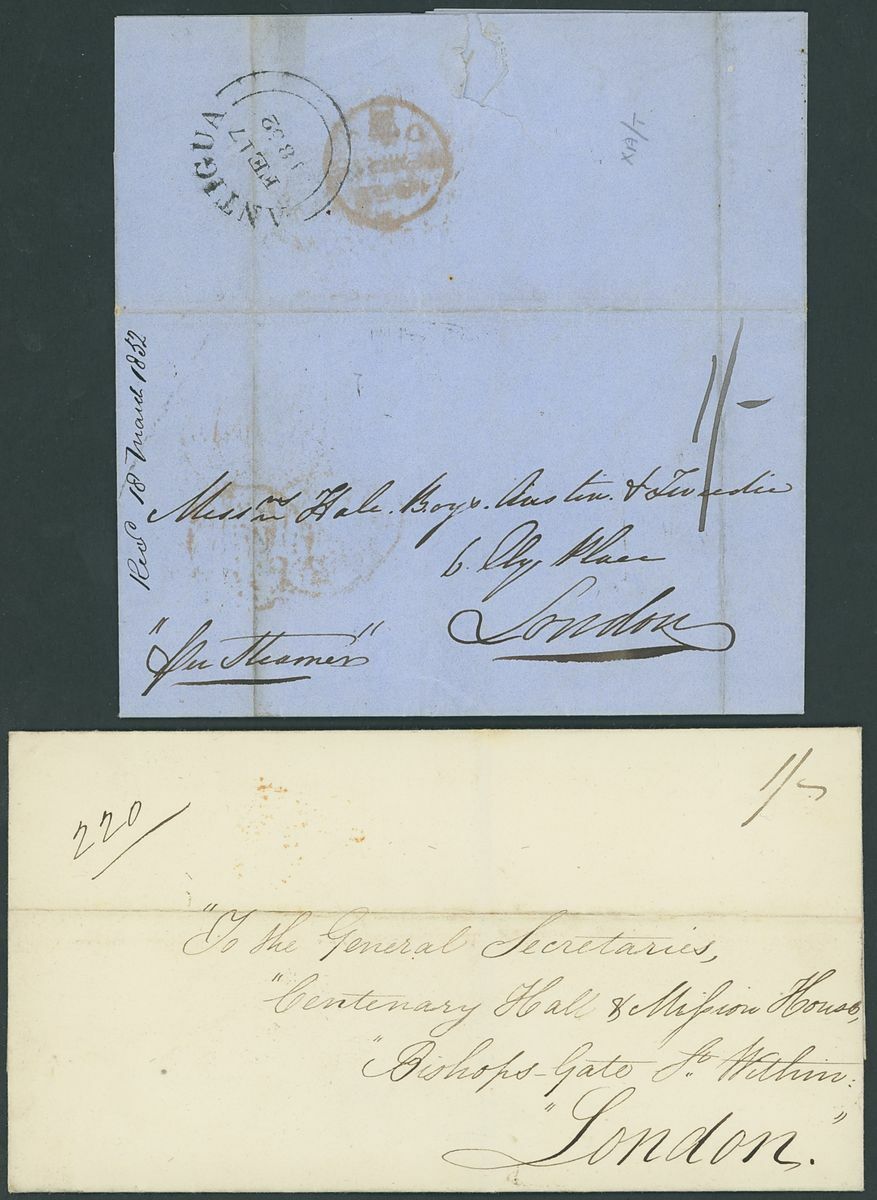 ANTIGUA
FE 17
1852
XA/T
Recd 18 March 1852
1/-
Messrs Hale. Boys. Austen. & Tweedie
6. Ely Place
London
"Per Steamer"
220/
1/-
"To the General Secretaries,
"Centenary Hall & Mission House,
"Bishops-Gate St. Within:
"London."